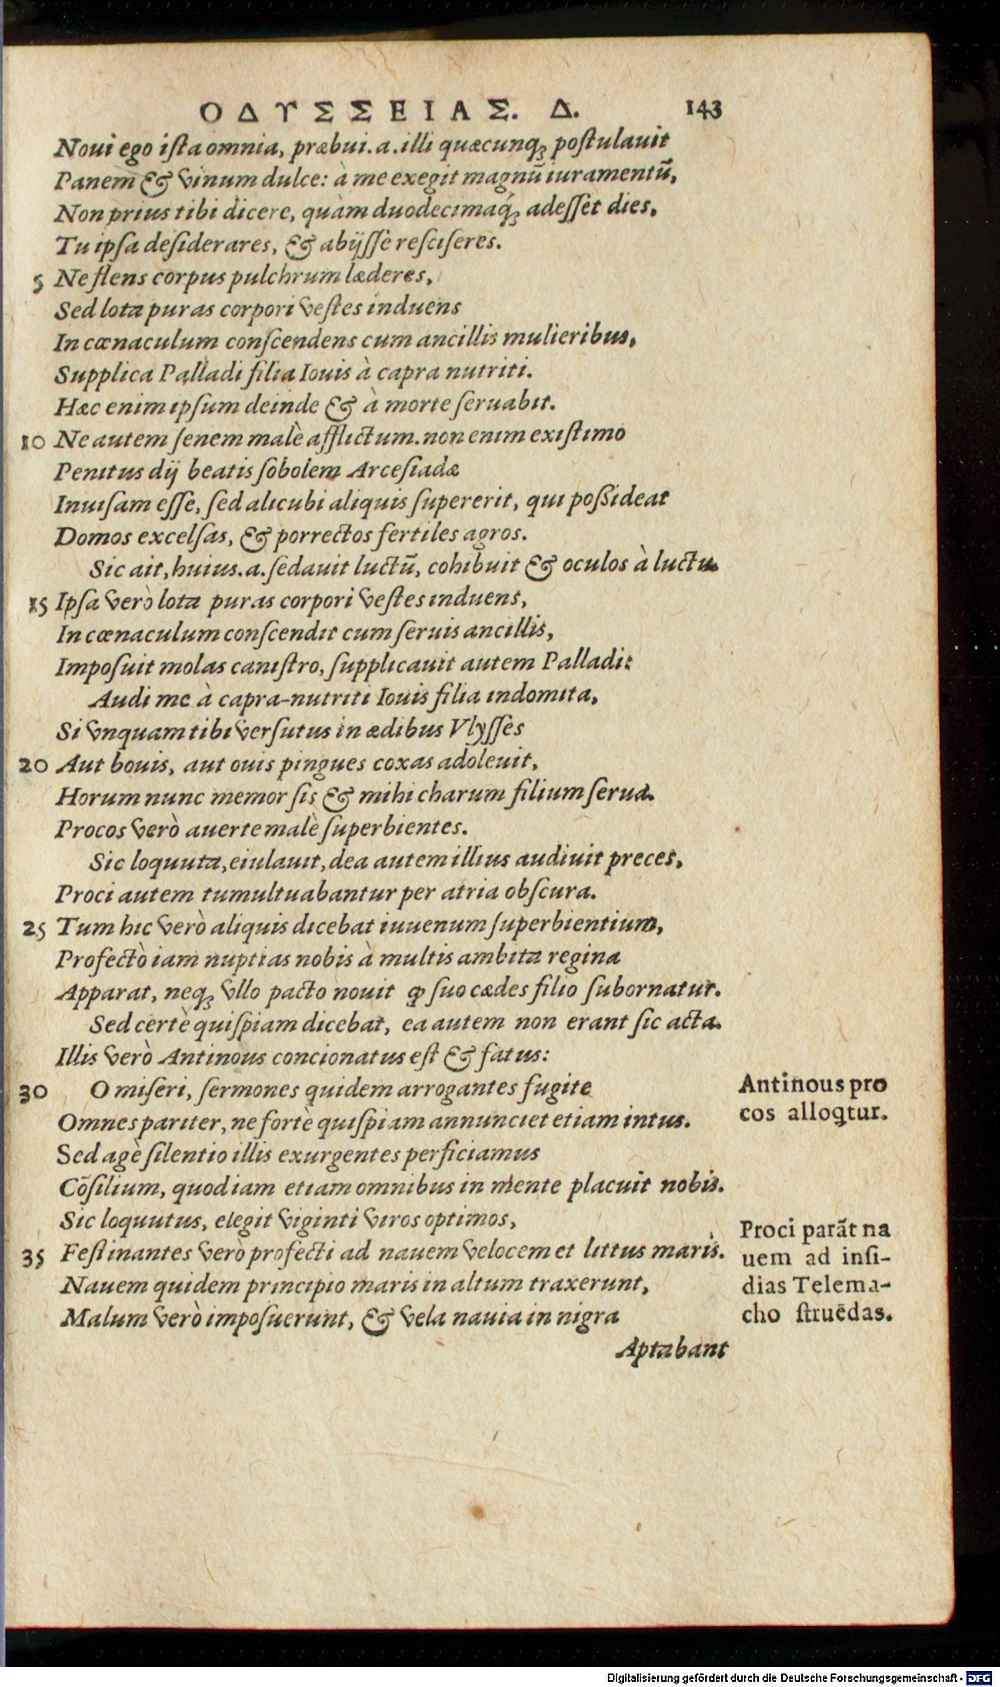 ΟΔΥΣΣΕΙΑΣ. Δ. 143
Noui ego ista omnia, præbui. a. illi quæcunq; postulauit
Panem & vinum dulce: à me exegit magnũ iuramentũ,
Non prius tibi dicere, quàm duodecimaq́; adesset dies,
Tu ipsa desiderares, & abijsse resciseres.
5 Ne flens corpus pulchrum læderes,
Sed lota puras corpori vestes induens
In cœnaculum conscendens cum ancillis mulieribus,
Supplica Palladi filia Iouis à capra nutriti.
Hæc enim ipsum deinde & à morte seruabit.
10 Ne autem senem malè afflictum. non enim existimo
Penitus dij beatis sobolem Arcesiadæ
Inuisam esse, sed alicubi aliquis supererit, qui possideat
Domos excelsas, & porrectos fertiles agros.
Sic ait, huius. a. sedauit luctũ, cohibuit & oculos à luctu.
15 Ipsa verò lota puras corpori vestes induens,
In cœnaculum conscendit cum seruis ancillis,
Imposuit molas canistro, supplicauit autem Palladi:
Audi me à capra-nutriti Iouis filia indomita,
Si vnquam tibi versutus in ædibus Vlysses
20 Aut bouis, aut ouis pingues coxas adoleuit,
Horum nunc memor sis & mihi charum filium serua.
Procos verò auerte malè superbientes.
Sic loquuta, eiulauit, dea autem illius audiuit preces,
Proci autem tumultuabantur per atria obscura.
25 Tum hic verò aliquis dicebat iuuenum superbientium,
Profectò iam nuptias nobis à multis ambita regina
Apparat, neq; vllo pacto nouit ꝙ suo cædes filio subornatur.
Sed certè quispiam dicebat, ea autem non erant sic acta.
Illis verò Antinous concionatus est & fatus:
30 O miseri, sermones quidem arrogantes fugite
Omnes pariter, ne fortè quispiam annunciet etiam intus.
Sed agè silentio illis exurgentes perficiamus
Cõsilium, quod iam etiam omnibus in mente placuit nobis.
Sic loquutus, elegit viginti viros optimos,
35 Festinantes verò profecti ad nauem velocem et littus maris.
Nauem quidem principio maris in altum traxerunt,
Malum verò imposuerunt, & vela nauia in nigra
Aptabant
Antinous pro
cos alloqtur.
Proci parãt na
uem ad insi-
dias Telema-
cho struẽdas.
Digitalisierung gefördert durch die Deutsche Forschungsgemeinschaft - DFG